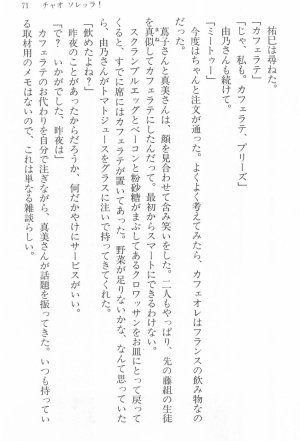 71　チャオ ソレッラ!
　祐巳は尋ねた。
「カフェラテ」
「じゃ、私も。カフェラテ、プリーズ」
　由乃さんも続けて。
「ミートゥー」
　今度はちゃんと注文が通った。よくよく考えてみたら、カフェオレはフランスの飲み物なの
だ。
　蔦子さんと真美さんは、顔を見合わせて含み笑いをした。二人もやっぱり、先の藤組の生徒
を真似してカフェラテにしたんだって。最初からスマートにできるわけない。
　スクランブルエッグとベーコンと粉砂糖がまぶしてあるクロワッサンをお皿にとって戻って
くると、すでに席にはカフェラテが置いてあった。野菜が足りないかな、なんて思っていた
ら、由乃さんがトマトジュースをグラスに注いで持ってきてくれた。
「飲めたよね?」
　昨夜のことがあったからだろうか、何だかやけにサービスがいい。
「で?　いかがでした、昨夜は」
　カフェラテのお代わりを自分で注ぎながら、真美さんが話題を振ってきた。いつも持ってい
る取材用のメモはないので、これは単なる雑談らしい。